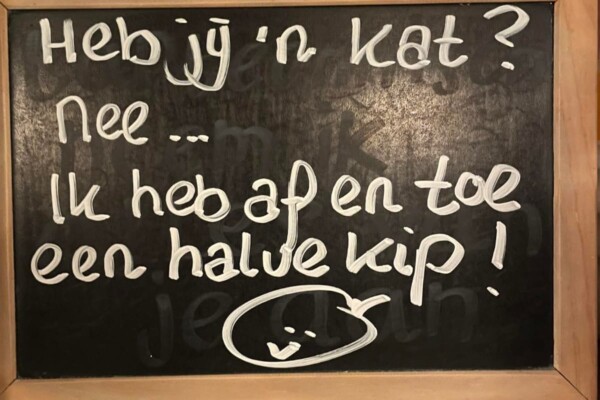 Heb jij 'n kat?
Nee ...
Ik heb af en toe
een halve kip!